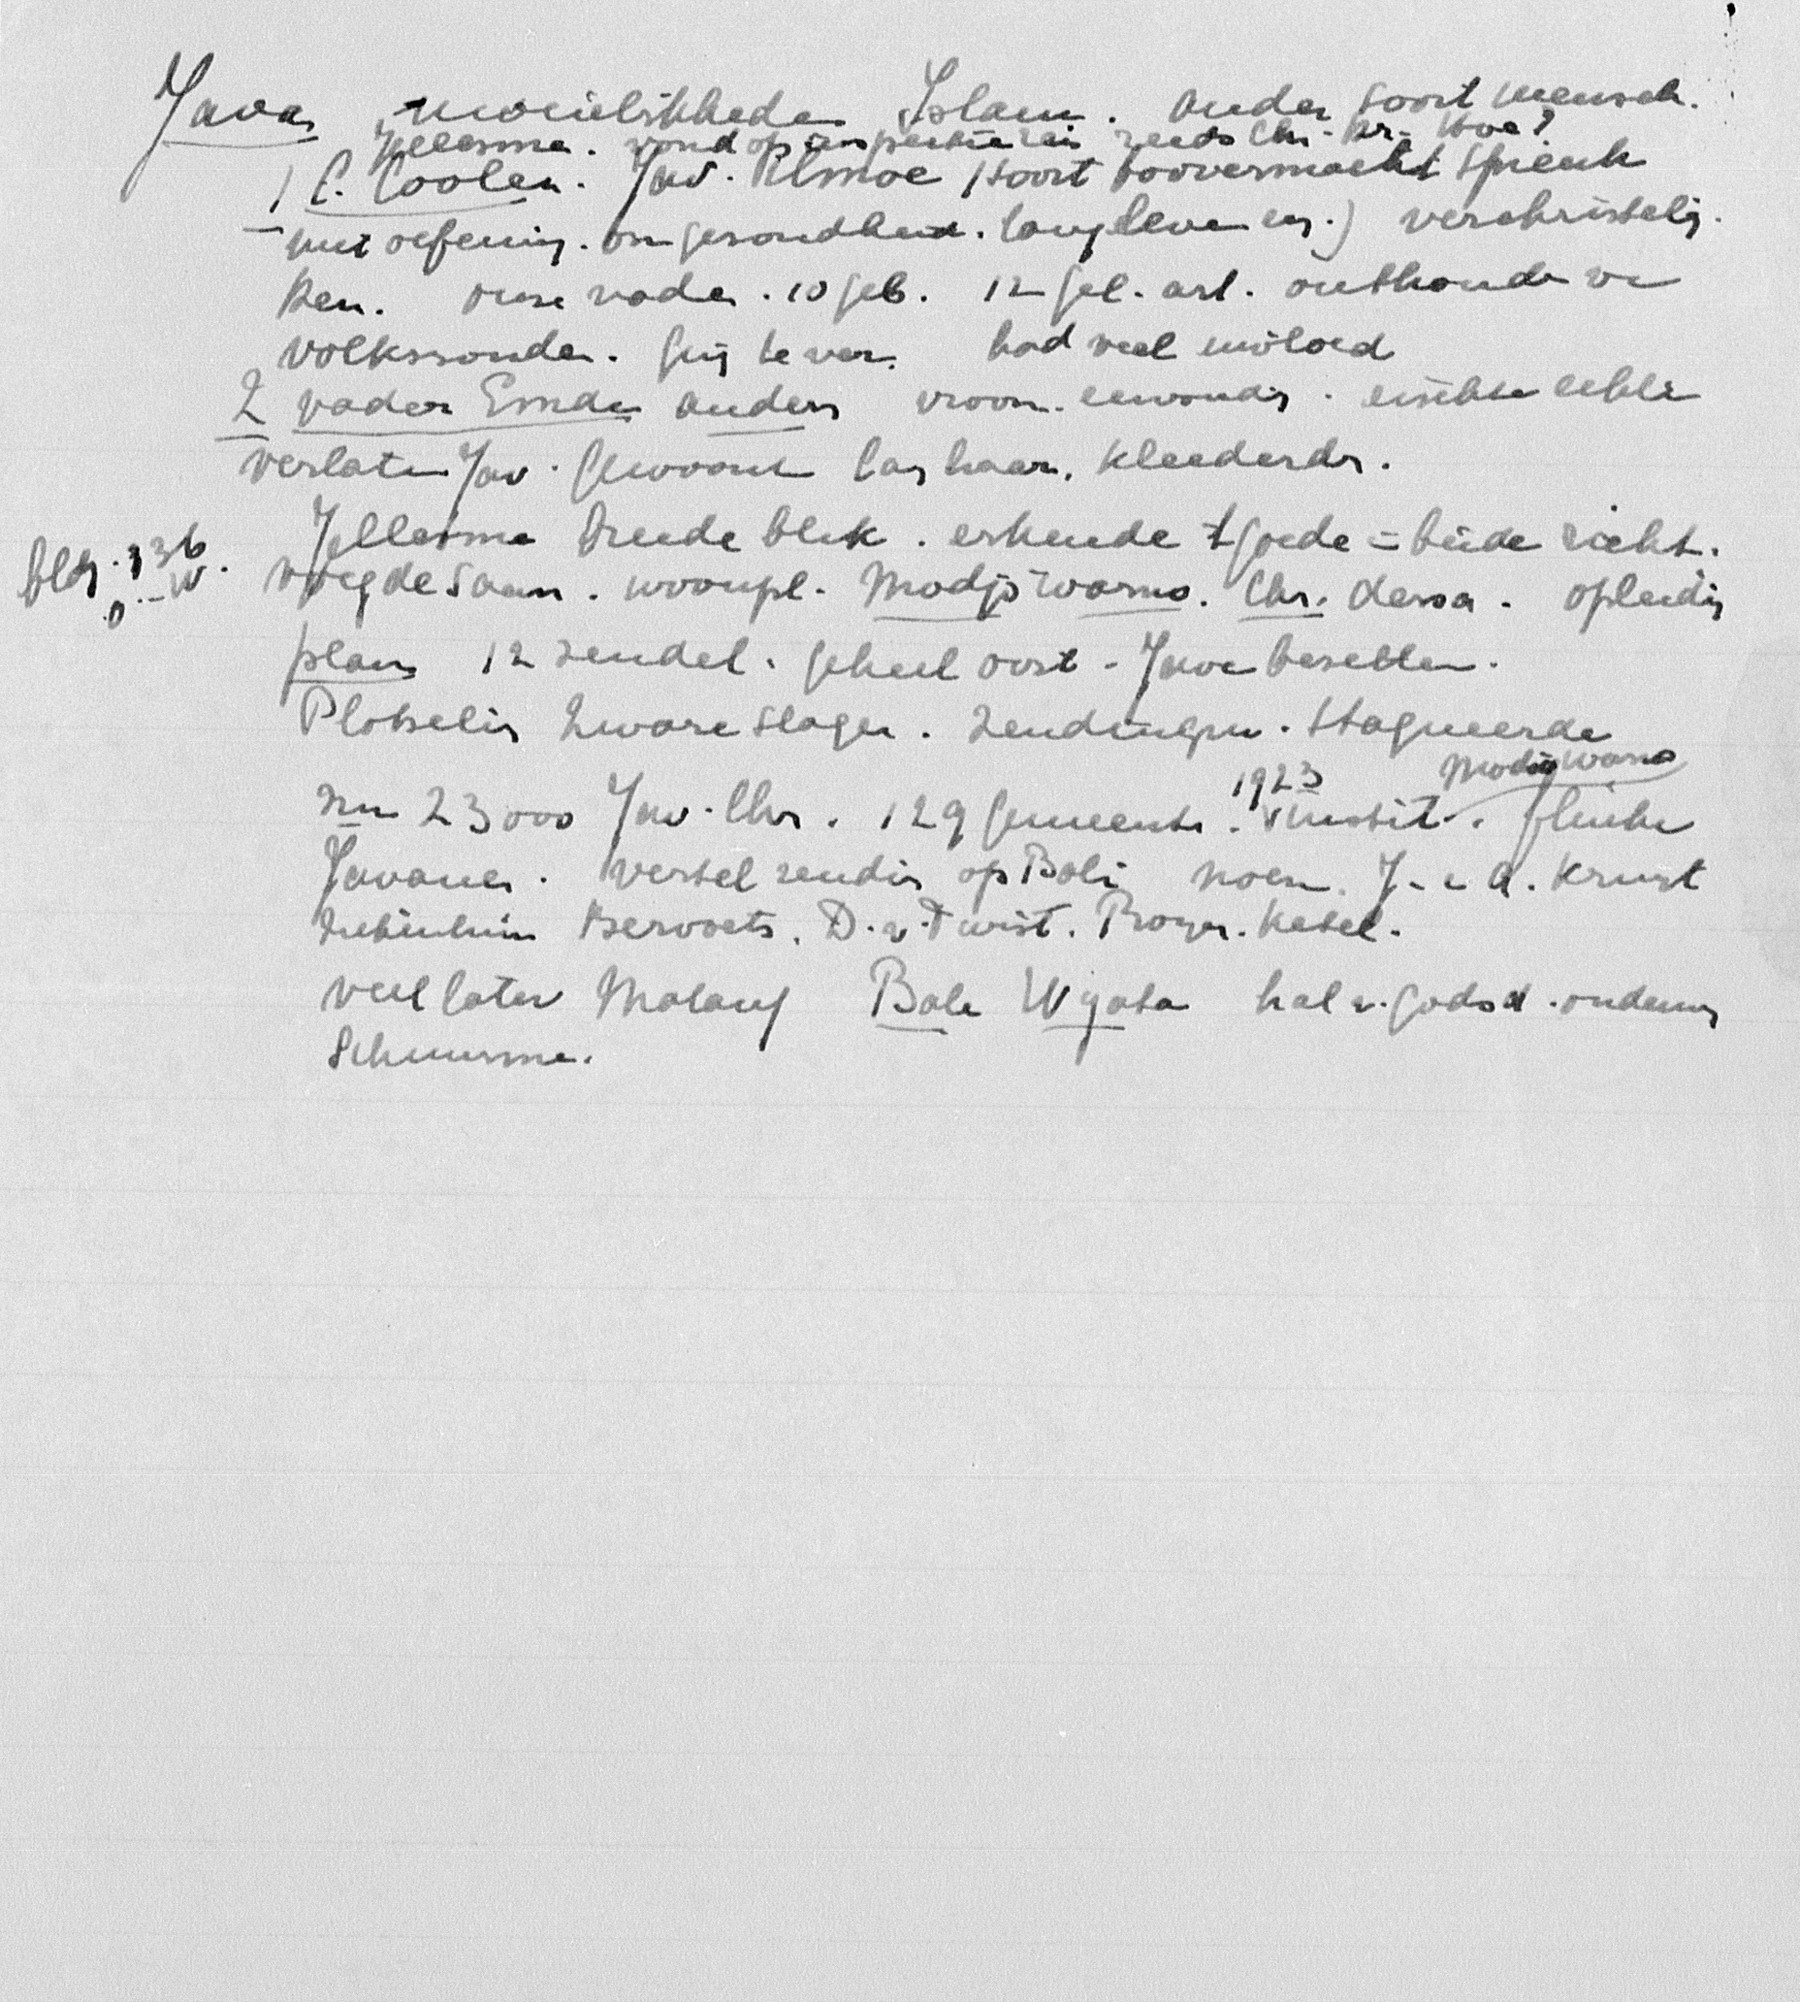 Java moeielikheden Islam. ander soort mensch.
Jellesma. vond op inspectie reis reeds Chr. kr. Hoe?
1 C. Coolen. Jav. Ilmoe (soort toovermacht spreuk
met oefening. om gezondheid. lang leven enz.) verchristelij-
ken. onze vader. 10 geb. 12 gel. art. onthoude v
volkszonden. had veel invloed
2 vader Emde anders vroom. eenvoudig. eischte
verlaten Jav. gewoont lang haar. kleederdr.
Jellesma breede blik. erkende 't goede = beide richt.
bldz. 136. voegde saam. woonpl. Modjo Warno. Chr. dessa. opleidin
plan 12 zendel. geheel oost-Java bezetten.
Plotselin zware slagen. zendingsw. stagneerde
nu 23000 Jav. Chr. 129 gemeente. 1923 instit. Modjo Warno flinke
Javanen. vertel zendin op Bali noem. J. Kruyt
ziekenhuis Bervoets. D. v. Twist. Kesel.
veel later Malang Bale Wyata hal v. godsd. onderwij
Schuurma.